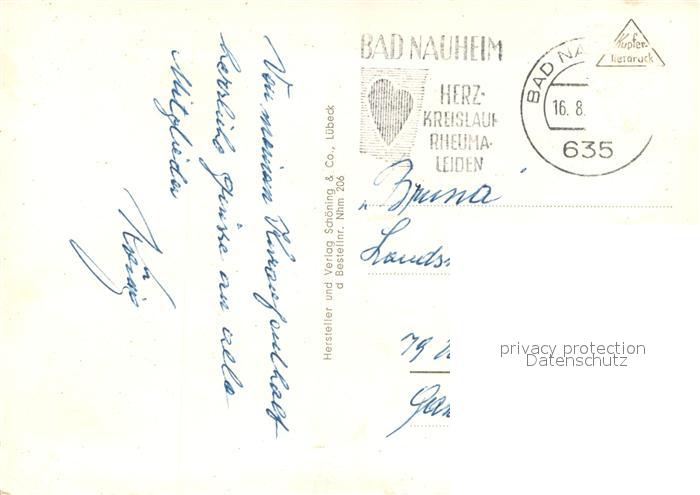 Von meinem Kuraufenthalt
herzliche Grüsse an alle
Mitglieder
Hersteller und Verlag Schöning & Co., Lübeck
d Bestellnr. Nhm 206
BAD NAUHEIM
HERZ-
KREISLAUF
RHEUMA-
LEIDEN
BAD NA
16. 8.
635
Kupfer-
tiefdruck
"Bruna"
Lands
79
privacy protection
Datenschutz